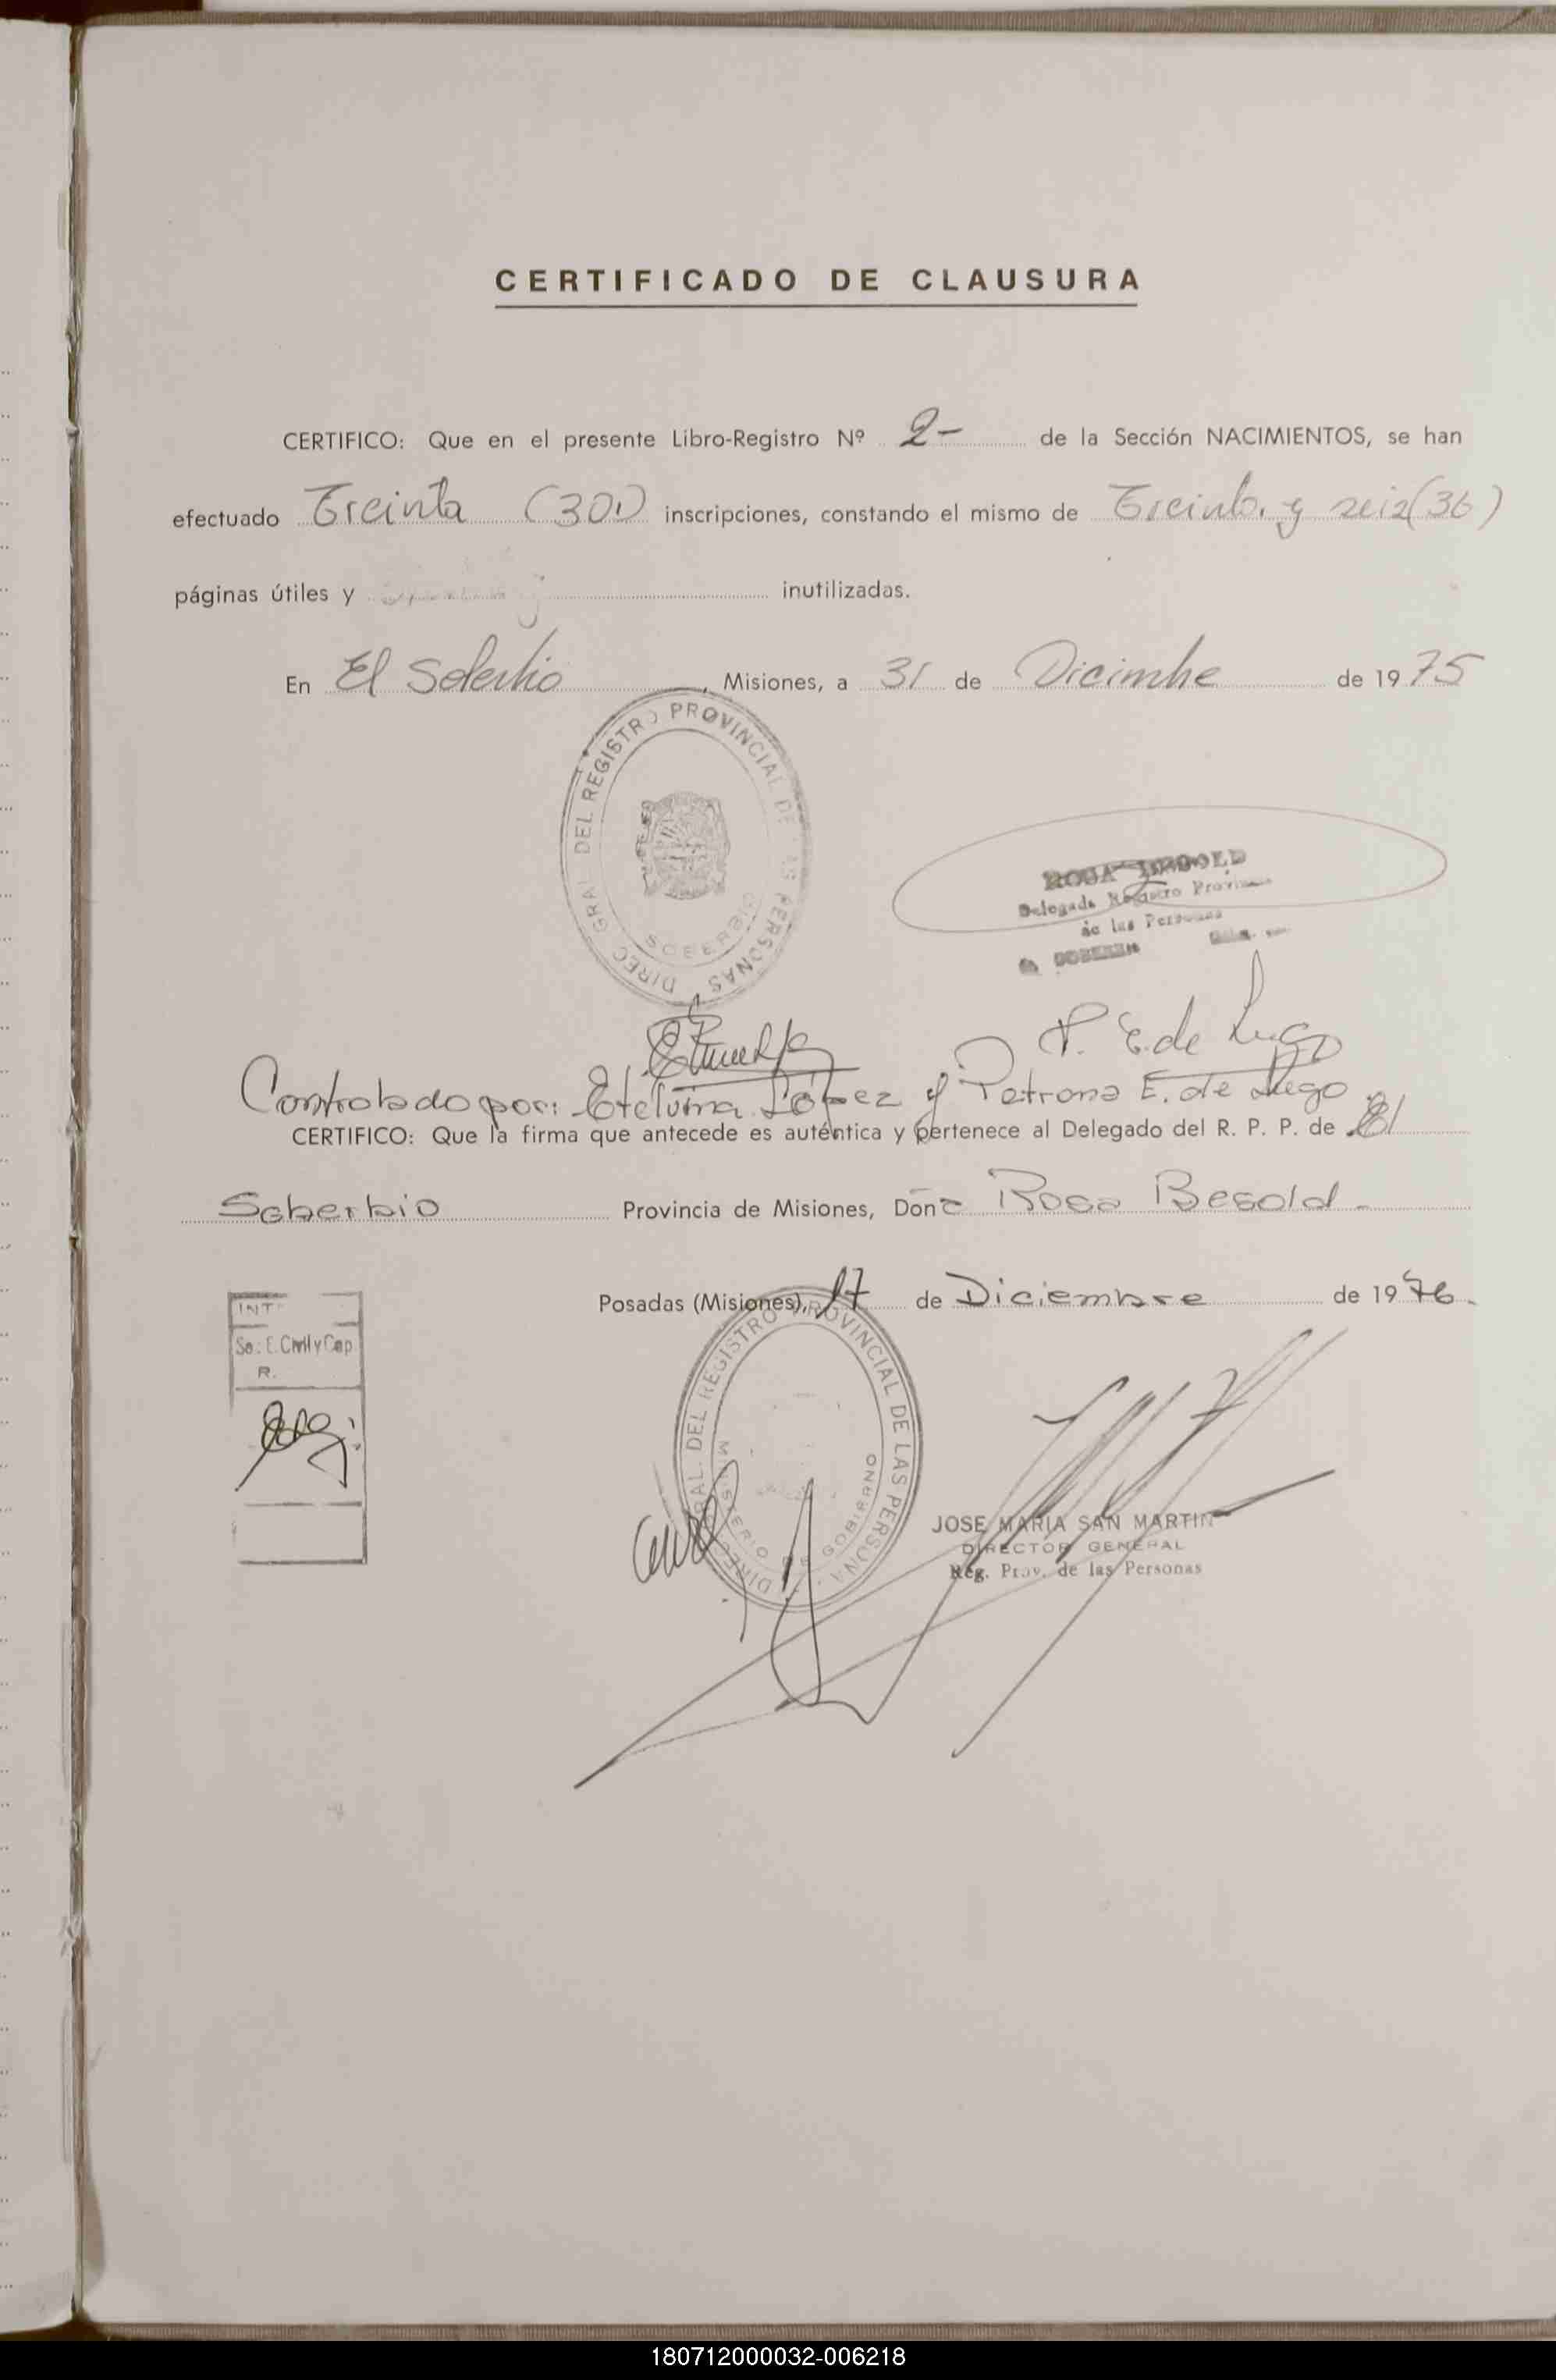 CERTIFICADO DE CLAUSURA
CERTIFICO: Que en el presente Libro-Registro Nº 2- de la Sección NACIMIENTOS, se han
efectuado Treinta (30) inscripciones, constando el mismo de Treinta y seis (36)
páginas útiles y inutilizadas.
En El Soberbio, Misiones, a 31 de Diciembre de 1975
DIREC. GRAL. DEL REGISTRO PROVINCIAL DE LAS PERSONAS
SOBERBIO
ROSA
Delegada Registro Provincial
de las Personas
P. E. de Lugo
Controlado por: Etelvina López y Petrona E. de Lugo
CERTIFICO: Que la firma que antecede es auténtica y pertenece al Delegado del R. P. P. de El
Soberbio Provincia de Misiones, Doña Rosa Besold -
Posadas (Misiones), 17 de Diciembre de 1976.
INT
Se: E. Civil y Cap
R.
DIREC. GRAL. DEL REGISTRO PROVINCIAL DE LAS PERSONAS
MINISTERIO DE GOBIERNO
JOSE MARIA SAN MARTIN
DIRECTOR GENERAL
Reg. Prov. de las Personas
180712000032-006218